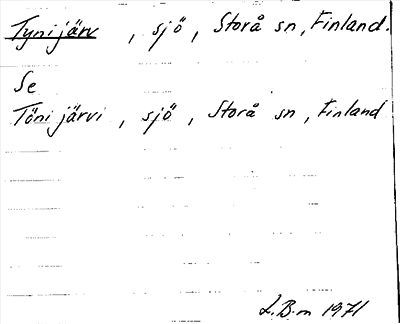 Tynijärv, sjö, Storå sn, Finland.
Se
Tönijärvi, sjö, Storå sn, Finland
L.B-m 1971